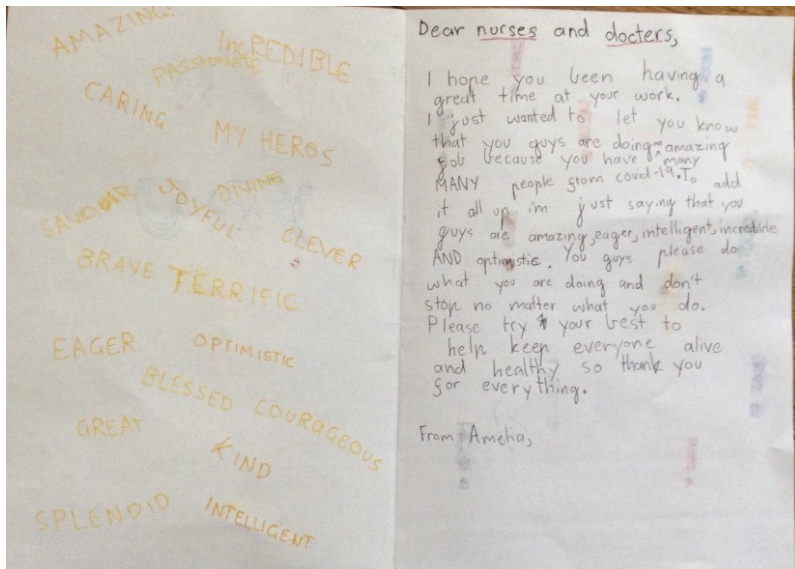 AMAZING!
IncREDIBLE
PASSIONATE
CARING
MY HEROS
DIVING
JOYFUL
SAVIOUR
CLEVER
BRAVE TERRIFIC
EAGER
OPTIMISTIC
BLESSED COURAGEOUS
GREAT
KIND
SPLENDID
INTELLIGENT
Dear nurses and docters,
I hope you been having a
great time at your work.
I just wanted to let you know
that you guys are doing an amazing
job because you have many
MANY people from covid-19. To add
it all up im just saying that you
guys are amazing, eager, intelligent, incredible
AND optimistic. You guys please do
what you are doing and don't
stop no matter what you do.
Please try your best to
help keep everyone alive
and healthy so thank you
for everything.
From Amelia,